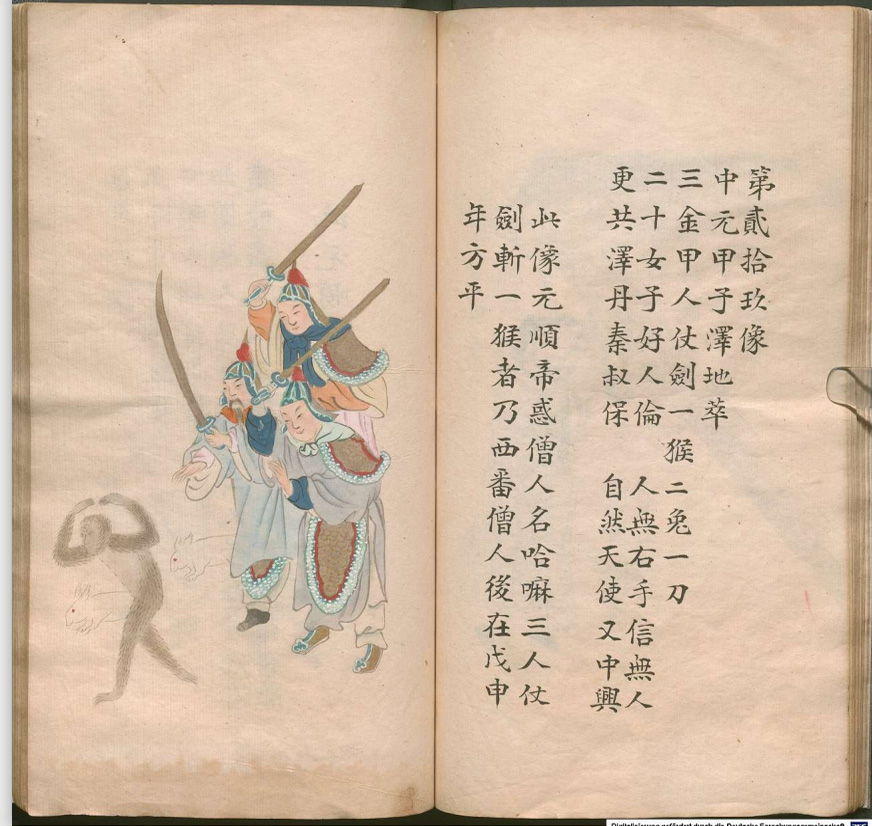 第貳拾玖像
中元甲子澤地萃
三金甲人仗劍一猴二兔一刀
二十女子好人倫 人無右手信無人
更共澤丹秦叔保 自然天使又中興
此像元順帝惑僧人名哈嘛三人仗
劍斬一猴者乃西番僧人後在戊申
年方平